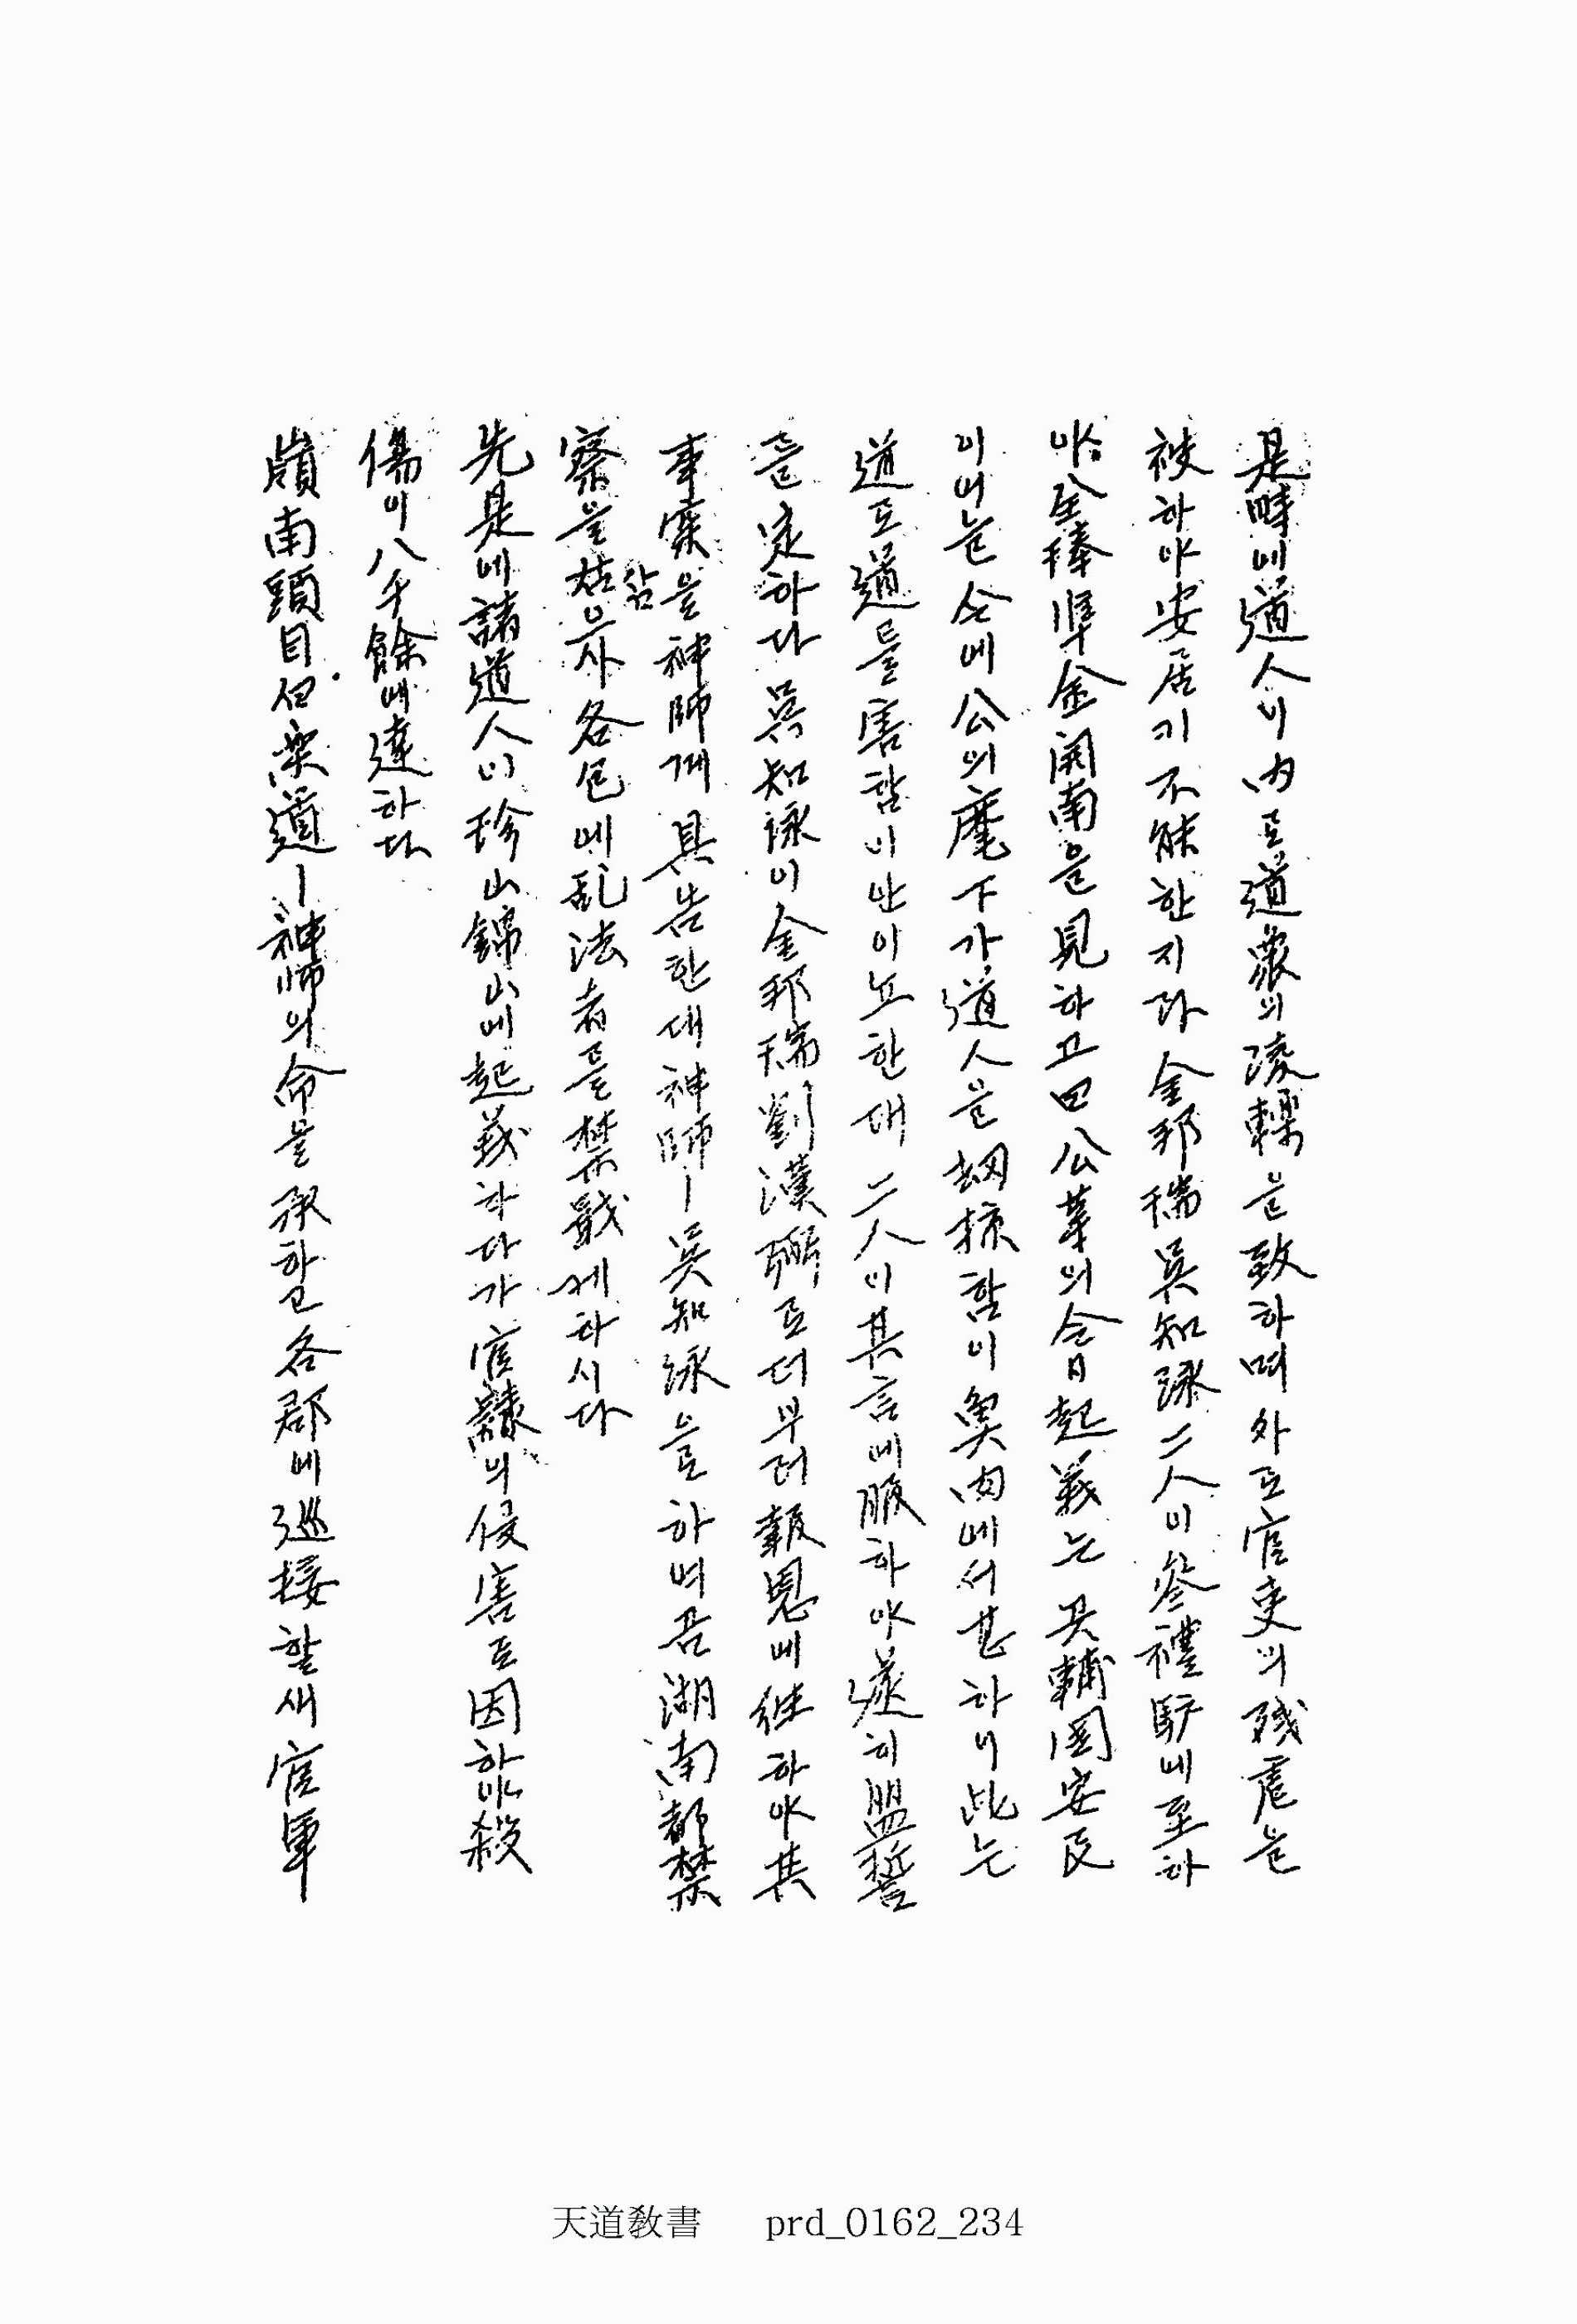 是時에道人이內로道衆의凌轢을致하며外로官吏의殘虐을
被하야安居키不能한지라金邦瑞吳知泳二人이參禮驛에至하
야金琫準金開南을見하고曰公等의今日起義는只輔國安民
이어늘今에公의麾下가道人을劫掠함이輿內에서甚하니此는
道로道를害함이안이뇨한대二人이其言에服하야遂히盟誓
를定하다吳知泳이金邦瑞劉漢弼로더부러報恩에往하야其
事案을神師께具告한대神師ㅣ吳知泳을하여곰湖南都禁
察을삼으사各包에乱法者를禁戢케하시다
先是에諸道人이珍山錦山에起義하다가官隸의侵害로因하야殺
傷이八千餘에達하다
嶺南頭目白樂道ㅣ神師의命을承하고各郡에巡接할새官軍
天道敎書 prd_0162_234